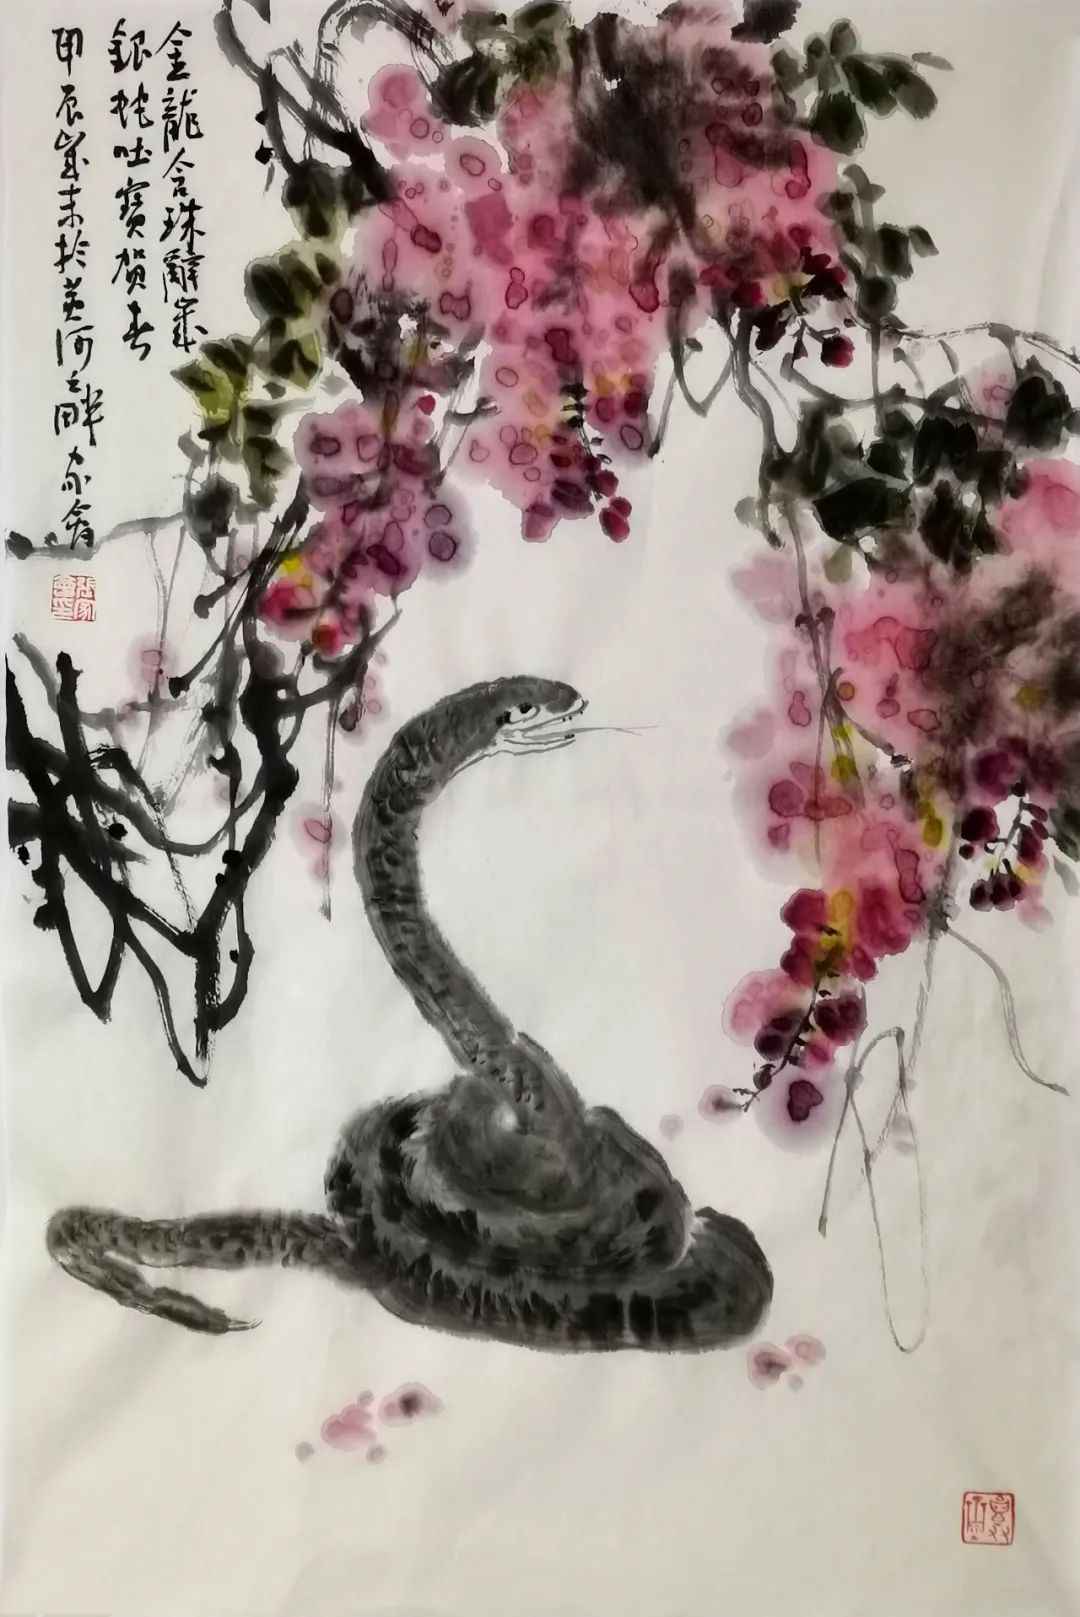 金龍含珠辭歲
銀蛇吐寶賀春
甲辰歲末於黄河之畔家會